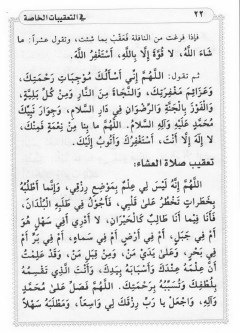 ٢٢ في التعقيبات الخاصة
فإذا فرغت من النافلة فعَقِّب بما شئت، وتقول عشراً: ما
شَاءَ اللَّهُ، لَا قُوَّةَ إِلَّا بِاللَّهِ، أَسْتَغْفِرُ اللَّهَ.
ثم تقول: اللَّهُمَّ إِنِّي أَسْأَلُكَ مُوجِبَاتِ رَحْمَتِكَ،
وَعَزَائِمَ مَغْفِرَتِكَ، وَالنَّجَاةَ مِنَ النَّارِ وَمِنْ كُلِّ بَلِيَّةٍ،
وَالْفَوْزَ بِالْجَنَّةِ وَالرِّضْوَانَ فِي دَارِ السَّلَامِ، وَجِوَارَ نَبِيِّكَ
مُحَمَّدٍ عَلَيْهِ وَآلِهِ السَّلَامُ. اللَّهُمَّ مَا بِنَا مِنْ نِعْمَةٍ فَمِنْكَ،
لَا إِلَهَ إِلَّا أَنْتَ، أَسْتَغْفِرُكَ وَأَتُوبُ إِلَيْكَ.
تعقيب صلاة العشاء:
اللَّهُمَّ إِنَّهُ لَيْسَ لِي عِلْمٌ بِمَوْضِعِ رِزْقِي، وَإِنَّمَا أَطْلُبُهُ
بِخَطَرَاتٍ تَخْطُرُ عَلَى قَلْبِي، فَأَجُولُ فِي طَلَبِهِ الْبُلْدَانَ،
فَأَنَا فِيمَا أَنَا طَالِبٌ كَالْحَيْرَانِ، لَا أَدْرِي أَفِي سَهْلٍ هُوَ
أَمْ فِي جَبَلٍ، أَمْ فِي أَرْضٍ أَمْ فِي سَمَاءٍ، أَمْ فِي بَرٍّ أَمْ
فِي بَحْرٍ، وَعَلَى يَدَيْ مَنْ، وَمِنْ قِبَلِ مَنْ، وَقَدْ عَلِمْتُ
أَنَّ عِلْمَهُ عِنْدَكَ وَأَسْبَابَهُ بِيَدِكَ، وَأَنْتَ الَّذِي تَقْسِمُهُ
بِلُطْفِكَ وَتُسَبِّبُهُ بِرَحْمَتِكَ. اللَّهُمَّ فَصَلِّ عَلَى مُحَمَّدٍ
وَآلِهِ، وَاجْعَلْ يَا رَبِّ رِزْقَكَ لِي وَاسِعاً، وَمَطْلَبَهُ سَهْلاً